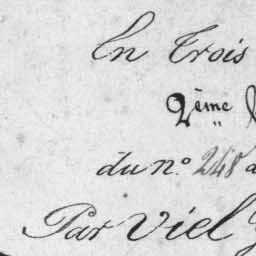 En Trois
2ème
du n.° 248
Par Viel